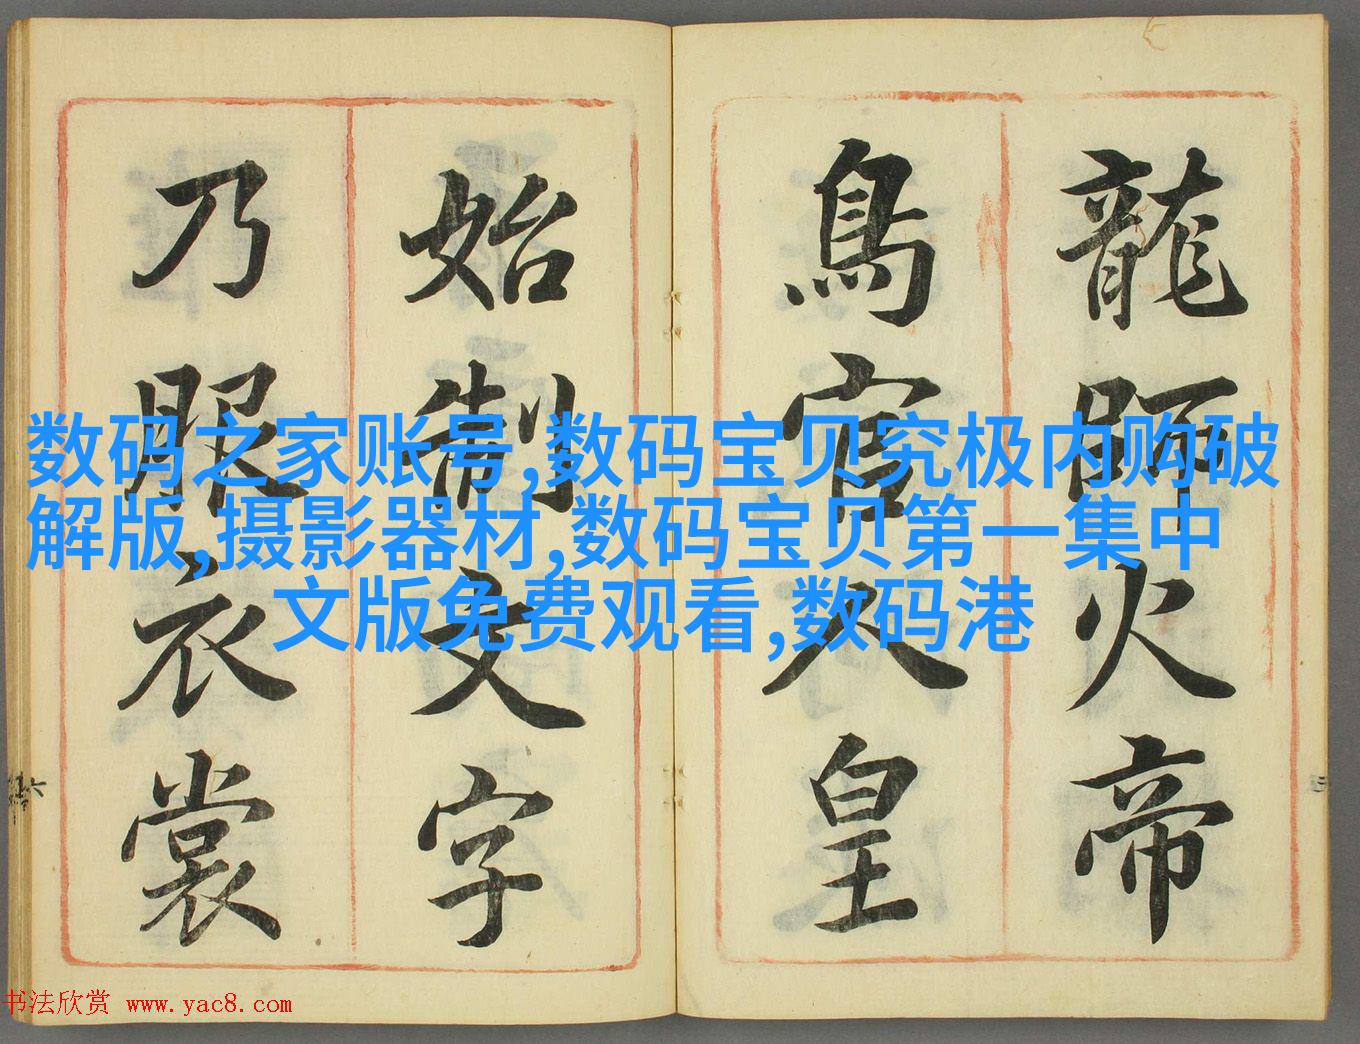 龍師火帝
鳥官人皇
始制文字
乃服衣裳
数码之家账号,数码宝贝究极内购破
解版,摄影器材,数码宝贝第一集中
文版免费观看,数码港
书法欣赏 www.yac8.com